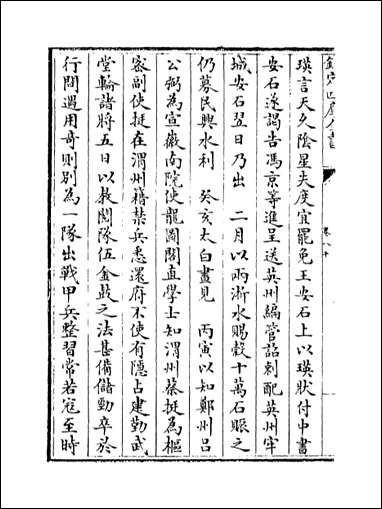 欽定四庫全書
卷八十
瑛言天久陰星失度宜罷免王安石上以瑛狀付中書
安石遂謁告馮京等進呈送英州編管詔刺配英州牢
城安石翌日乃出　二月以兩浙水賜穀十萬石賑之
仍募民興水利　癸亥太白晝見　丙寅以知鄭州呂
公弼為宣徽南院使龍圖閣直學士知渭州蔡挺為樞
密副使挺在渭州籍禁兵悉還府不使有隱占建勤武
堂輪諸將五日以教閲隊伍金鼓之法甚備儲勁卒於
行間遇用奇則别為一隊出戰甲兵整習常若寇至時